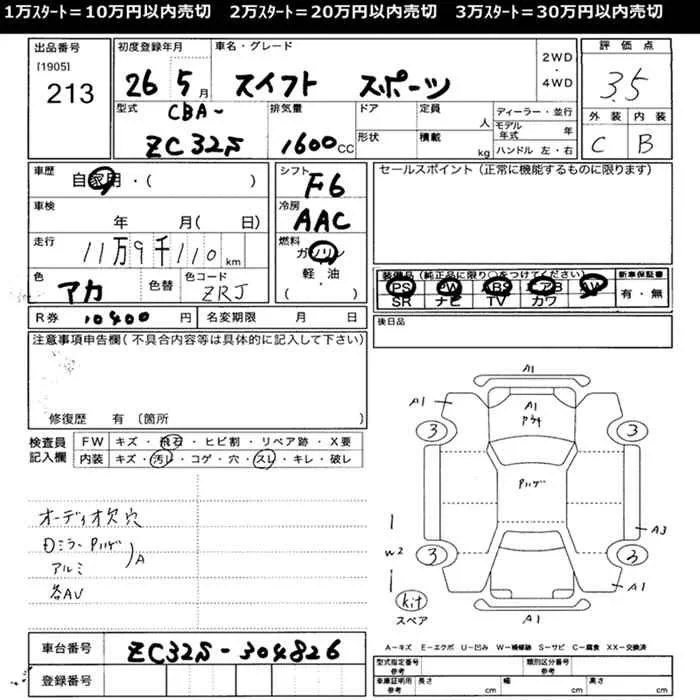 1万ｽﾀｰﾄ＝10万円以内売切　2万ｽﾀｰﾄ＝20万円以内売切　3万ｽﾀｰﾄ＝30万円以内売切
出品番号 [1905] 213
初度登録年月 26 5月
車名・グレード スイフト スポーツ
2WD・4WD
評価点 3.5
外装 C 内装 B
型式 CBA- ZC32S
排気量 1600CC
ドア 定員 人
形状 積載 kg
ディーラー・並行
モデル年式 年
ハンドル 左・右
車歴 自家用・( )
車検 年 月( 日)
走行 11万9千110km
色 アカ 色替 色コード ZRJ
シフト F6
冷房 AAC
燃料 ガソリン 軽・油 ( )
セールスポイント(正常に機能するものに限ります)
装備品(純正品に限り○をつけてください) 新車保証書
PS PW ABS エアB AW 有・無
SR ナビ TV カワ
R券 10400円 名変期限 月 日
後日品
注意事項申告欄(不具合内容等は具体的に記入して下さい)
修復歴 有〔箇所
検査員記入欄
FW キズ・飛石・ヒビ割・リペア跡・X要
内装 キズ・汚レ・コゲ・穴・スレ・キレ・破レ
オーディオ欠 穴
Dミラー Pハゲ
アルミ
A
各AU
A1
A1
A1
3
3
Pハゲ
A3
W2
3
3
A1
kit
スペア
A1
A－キズ E－エクボ U－凹み W－補修跡 S－サビ C－腐食 XX－交換済
車台番号 ZC32S-304826
登録番号
型式指定番号 参考
類別区分番号 参考
車庫証明用 参考 長さ cm 幅 cm 高さ cm